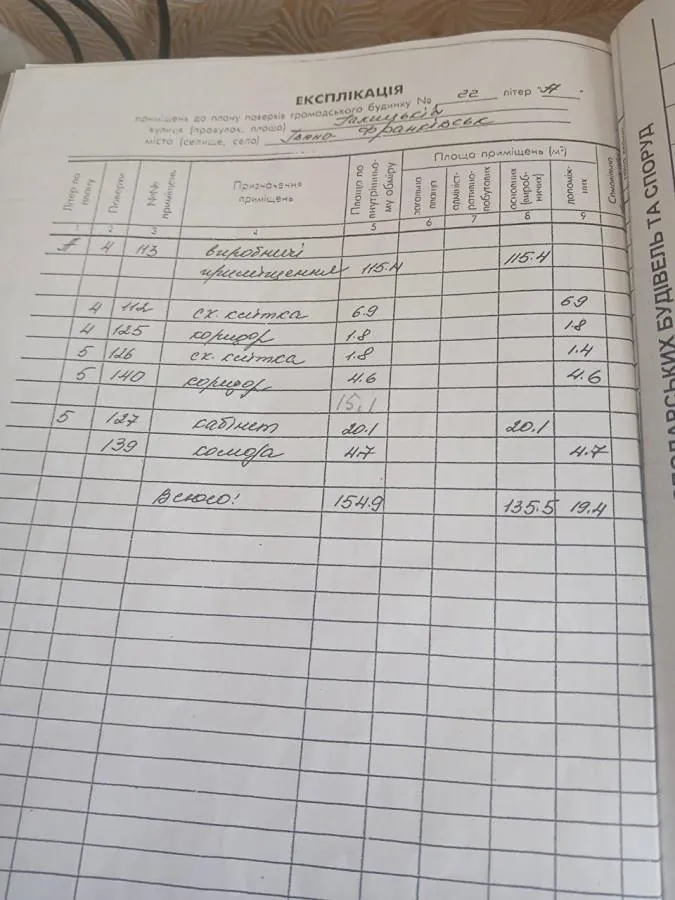 ЕКСПЛІКАЦІЯ
приміщень до плану поверхів громадського будинку № 22 літер "А".
вулиця (провулок, площа) Галицькій
місто (селище, село) Івано Франківськ
Літер по плану
Поверхи
№№ приміщень
Призначення приміщень
Площа по внутрішньому обміру
Площа приміщень (м²)
загальна площа
адміністративно-побутових
основних (виробничих)
допоміжних
Самовільно
1 2 3 4 5 6 7 8 9
А 4 113 виробничі
приміщення 115.4 115.4
4 112 сх. клітка 6.9 6.9
4 125 коридор 1.8 1.8
5 126 сх. клітка 1.8 1.4
5 140 коридор 4.6 4.6
15,1
5 127 кабінет 20.1 20.1
139 комора 4.7 4.7
Всього! 154.9 135.5 19.4
ОСПОДАРСЬКИХ БУДІВЕЛЬ ТА СПОРУД